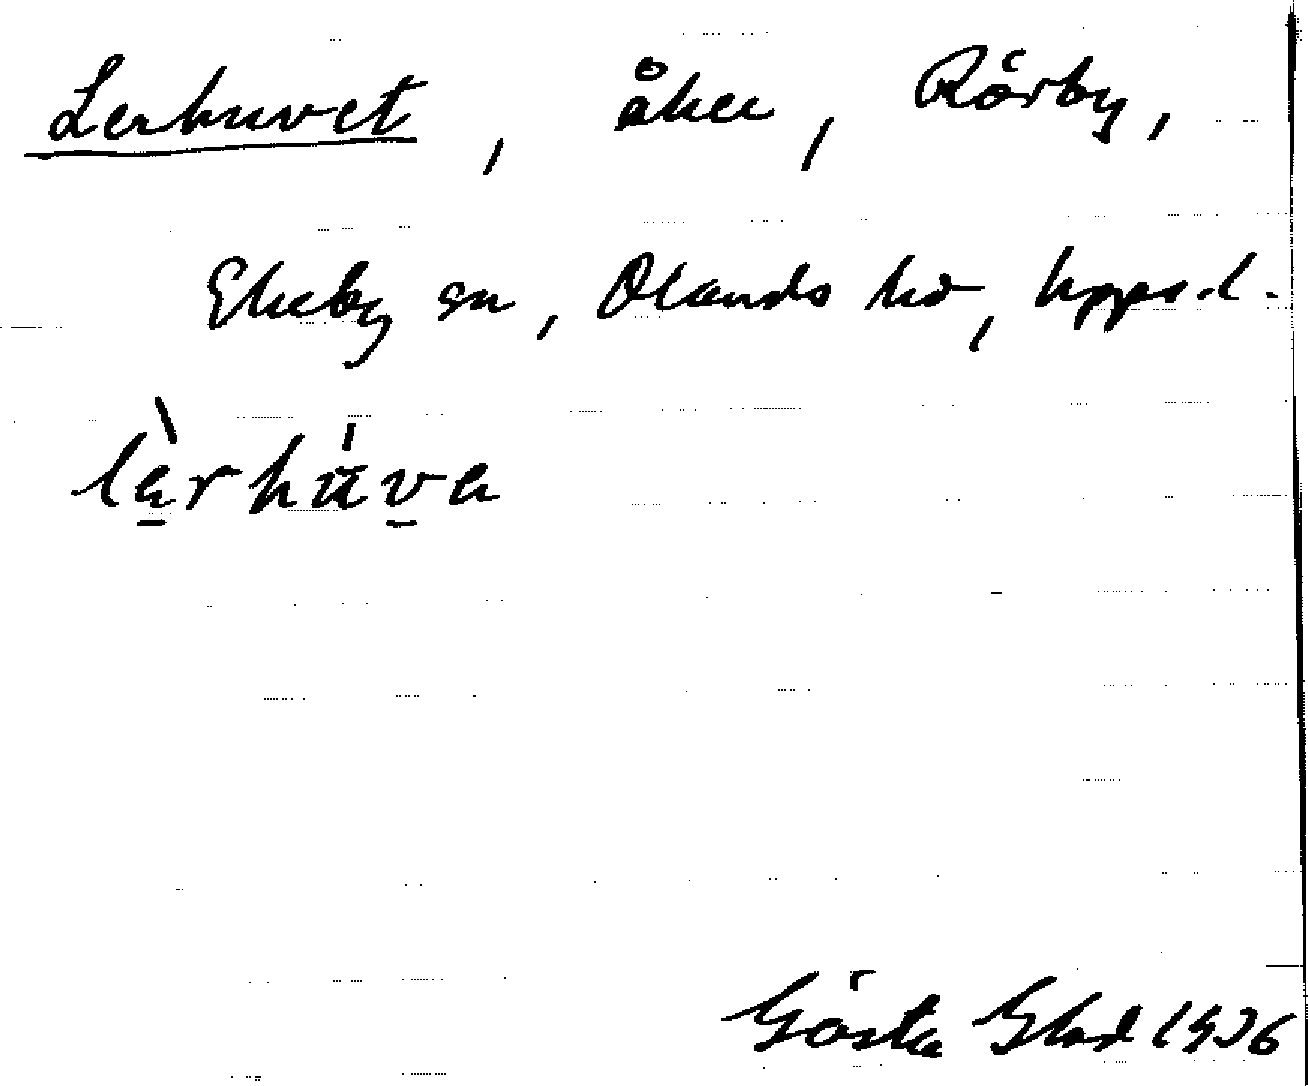 Lerhuvet, åker, Rörby,
Ekeby sn, Olands hd, Upps.l.
lèrhúva
Gösta Glad 1936